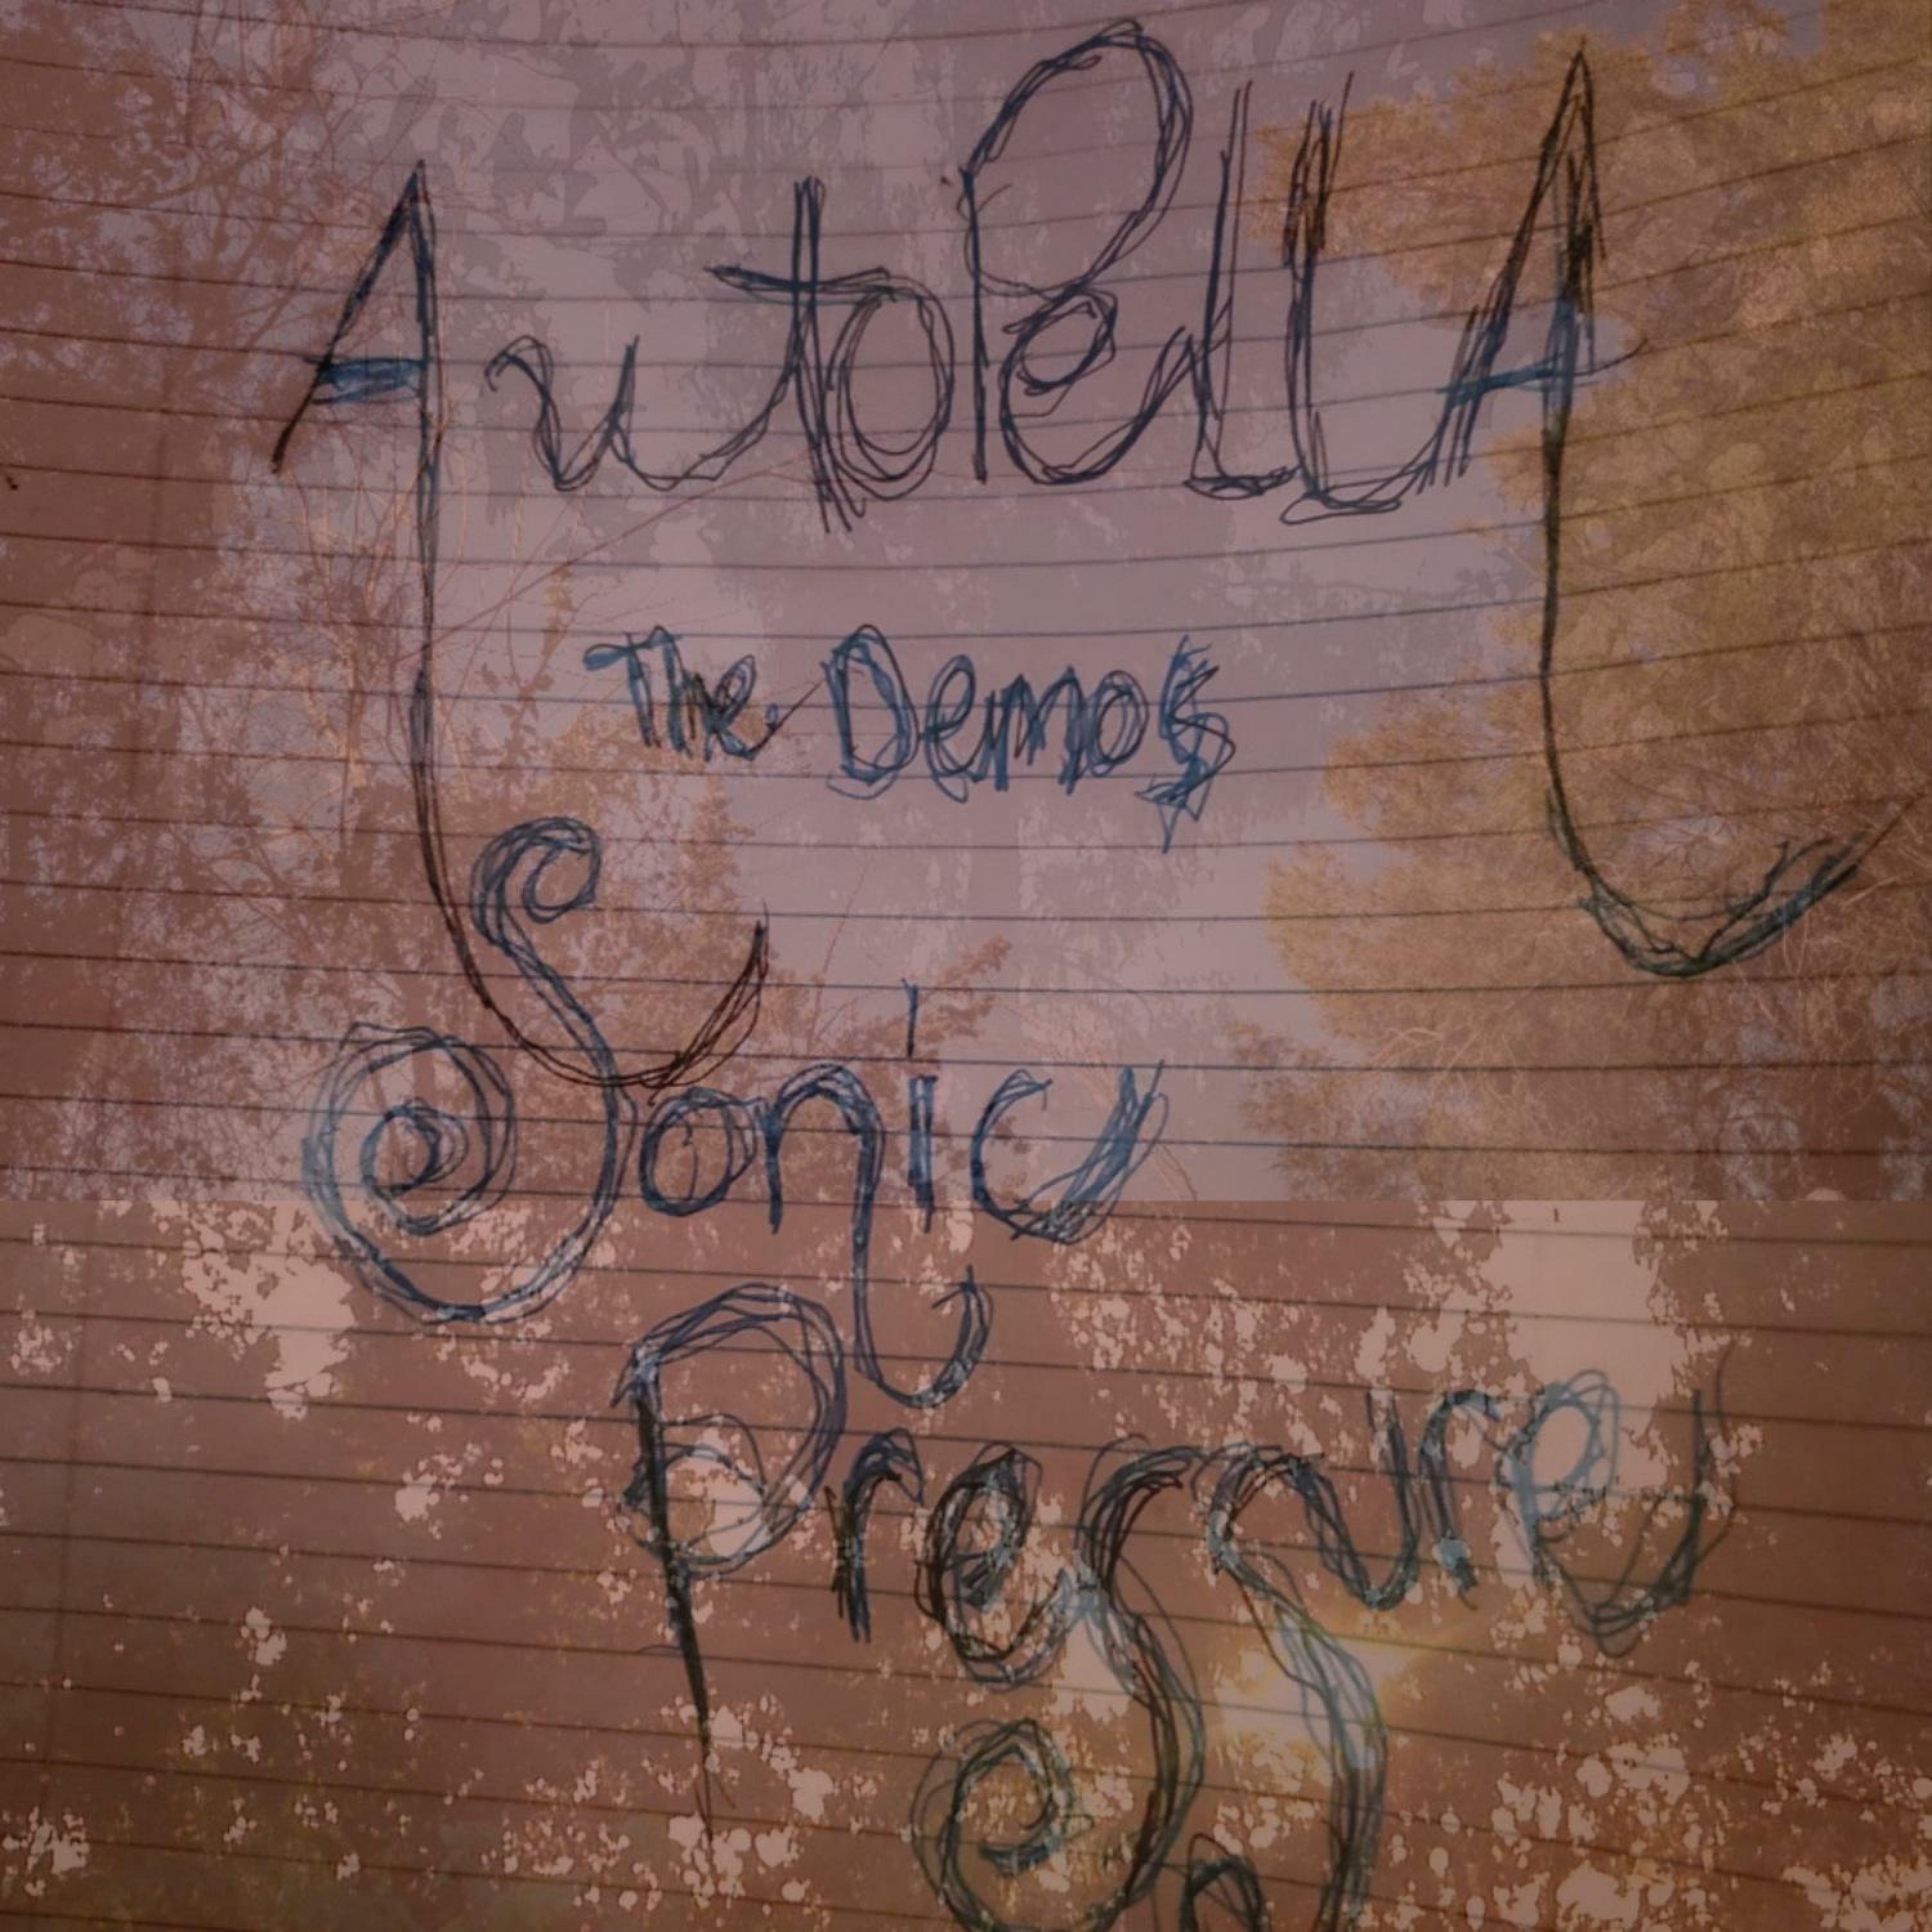 AutoPellA
The Demos
Sonic
Pressure